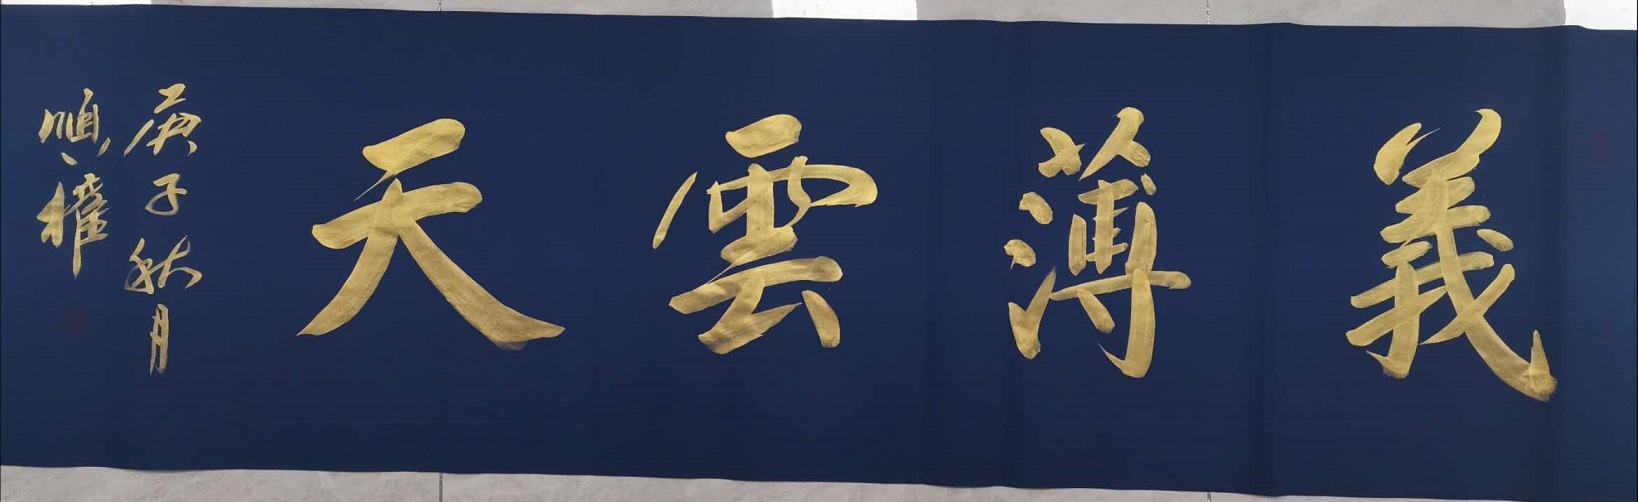 義薄雲天
庚子秋月
順權